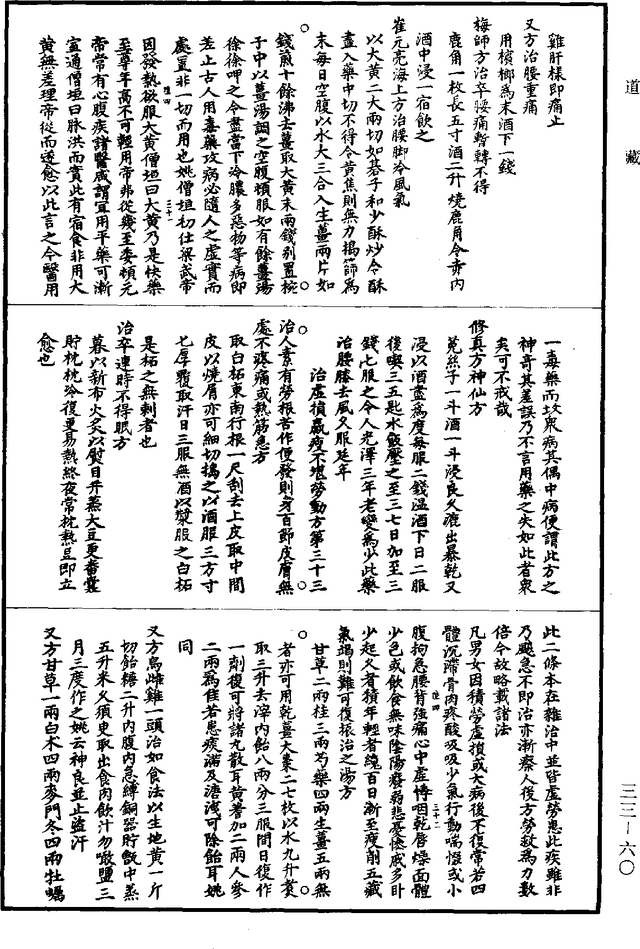 道藏
雞肝樣即痛止
又方治腰重痛
用檳榔為末酒下一錢
梅師方治卒腰痛暫轉不得
鹿角一枚長五寸酒二升燒鹿角令赤內
酒中浸一宿飲之
崔元亮海上方治腰脚冷風氣
以大黃二大兩切如碁子和少酥炒令酥
盡入藥中切不得令黃焦則無力擣篩為
末每日空腹以水大三合入生薑兩片如
錢煎十餘沸去薑取大黃末兩錢別置椀
子中以薑湯調之空腹頓服如有餘薑湯
徐徐呷之令盡當下冷膿多惡物等病即
差止古人用毒藥攻病必隨人之虛實而
處置非一切而用也姚僧垣初仕梁武帝
因發熱欲服大黃僧垣曰大黃乃是快藥
至尊年高不可輕用帝弗從幾至委頓元
帝常有心腹疾諸醫咸謂宜用平藥可漸
宣通僧垣曰脉洪而實此有宿食非用大
黃無差理帝從而遂愈以此言之今醫用
一毒藥而攻衆病其偶中病便謂此方之
神奇其差誤乃不言用藥之失如此者衆
矣可不戒哉
修真方神仙方
菟絲子一斗酒一斗浸良久漉出暴乾又
浸以酒盡為度每服二錢溫酒下日二服
後喫三五匙水飯壓之至三七日加至三
錢匕服之令人光澤三年老變為少此藥
治腰膝去風久服延年
治虛損羸瘦不堪勞動方第三十三
治人素有勞根苦作便發則身百節皮膚無
處不疼痛或熱筋急方
取白柘東南行根一尺刮去上皮取中間
皮以燒屑亦可細切擣之以酒服三方寸
匕厚覆取汗日三服無酒以漿服之白柘
是柘之無刺者也
治卒連時不得眠方
暮以新布火炙以熨目并蒸大豆更番囊
貯枕枕冷復更易熱終夜常枕熱豆即立
愈也
此二條本在雜治中並皆虛勞患此疾雖非
乃飈急不即治亦漸瘵人後方勞救為力數
倍今故略載諸法
凡男女因積勞虛損或大病後不復常若四
體沉滯骨肉疼酸吸吸少氣行動喘惙或小
腹拘急腰背強痛心中虛悸咽乾唇燥面體
少色或飲食無味陰陽廢弱悲憂慘慼多卧
少起久者積年輕者纔百日漸至瘦削五藏
氣竭則難可復振治之湯方
甘草二兩桂三兩芍藥四兩生薑五兩無
者亦可用乾薑大棗二七枚以水九升煑
取三升去滓內飴八兩分三服間日復作
一劑復可將諸丸散耳黃耆加二兩人參
二兩為佳若患痰滿及溏洩可除飴耳姚
同
又方烏雌雞一頭治如食法以生地黃一斤
切飴糖二升內腹內急縛銅器貯甑中蒸
五升米久須臾取出食肉飲汁勿噉鹽三
月三度作之姚云神良並止盜汗
又方甘草一兩白朮四兩麥門冬四兩牡蠣
三三—六〇